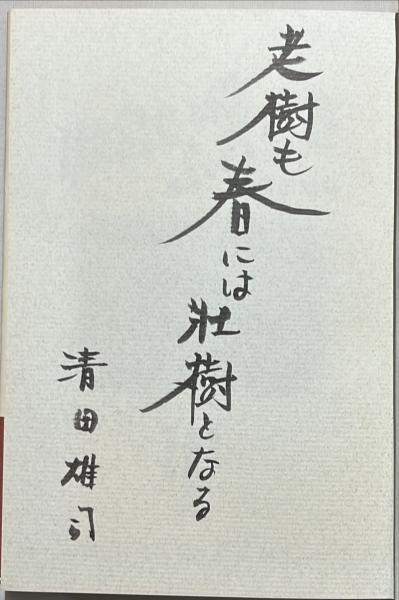 老樹も
春には
壯樹となる
清田雄司